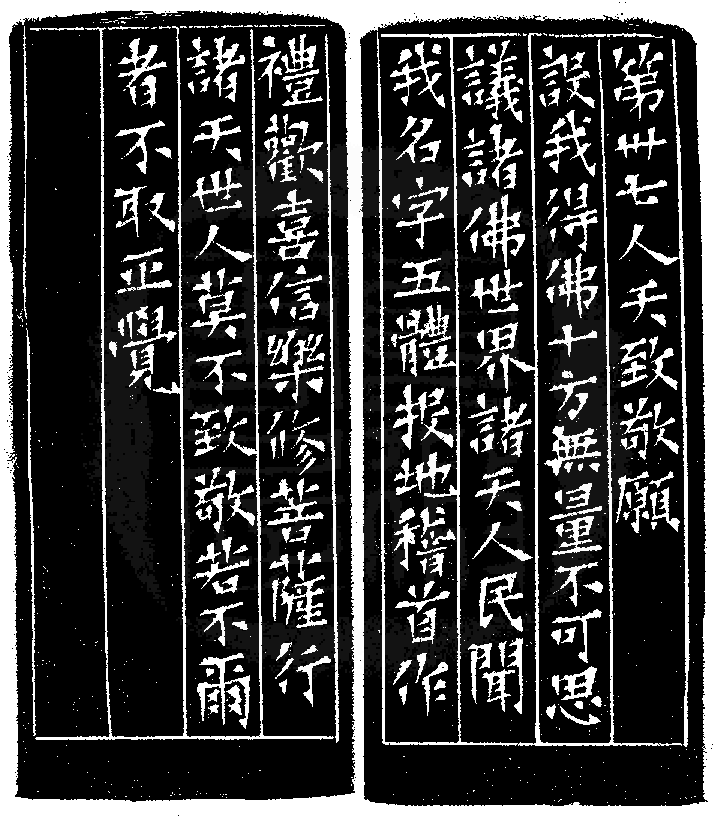 第卅七人天致敬願
設我得佛十方無量不可思
議諸佛世界諸天人民聞
我名字五體投地稽首作
禮歡喜信樂修菩薩行
諸天世人莫不致敬若不爾
者不取正覺